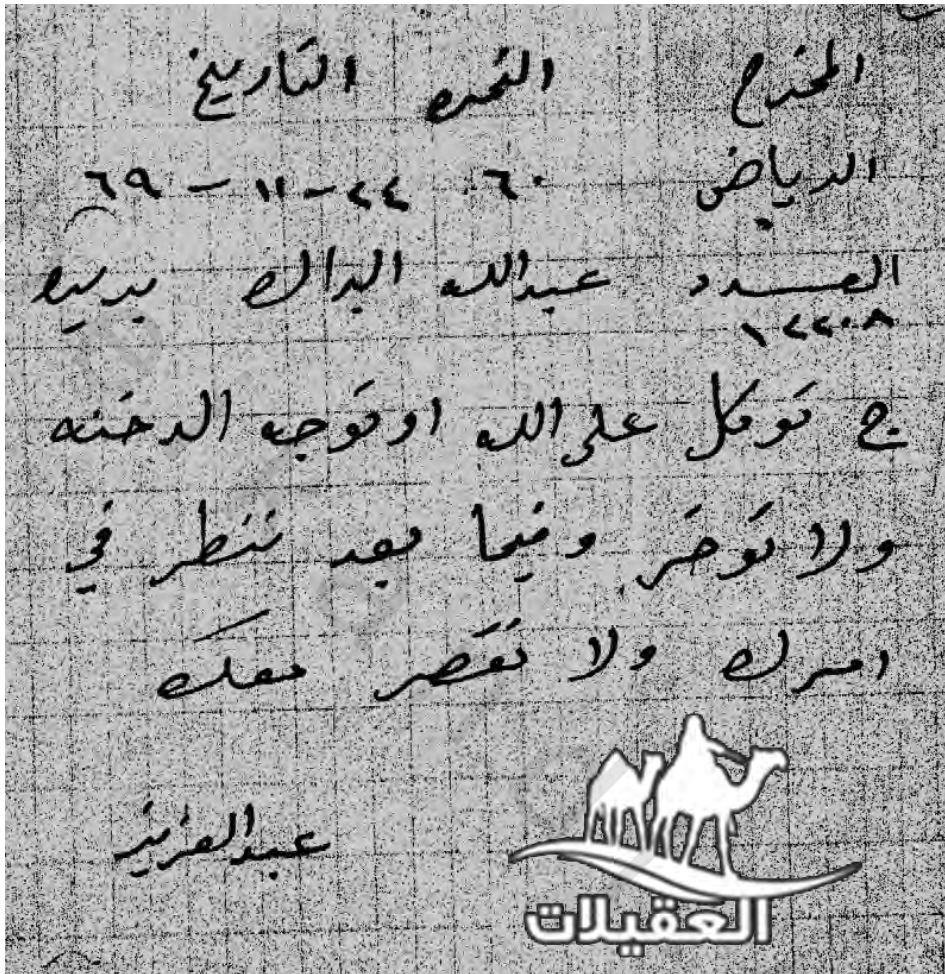 المخرج النمره التاريخ
الرياض ٦٠ ٢٤-١١-٦٩
العدد عبدالله البراك بريده
١٢٢٠٨
ج توكل على الله اوتوجه الدخنه
ولا توخر وفيما بعد ننظر في
امرك ولا نقصر معك
عبدالعزيز
العقيلات